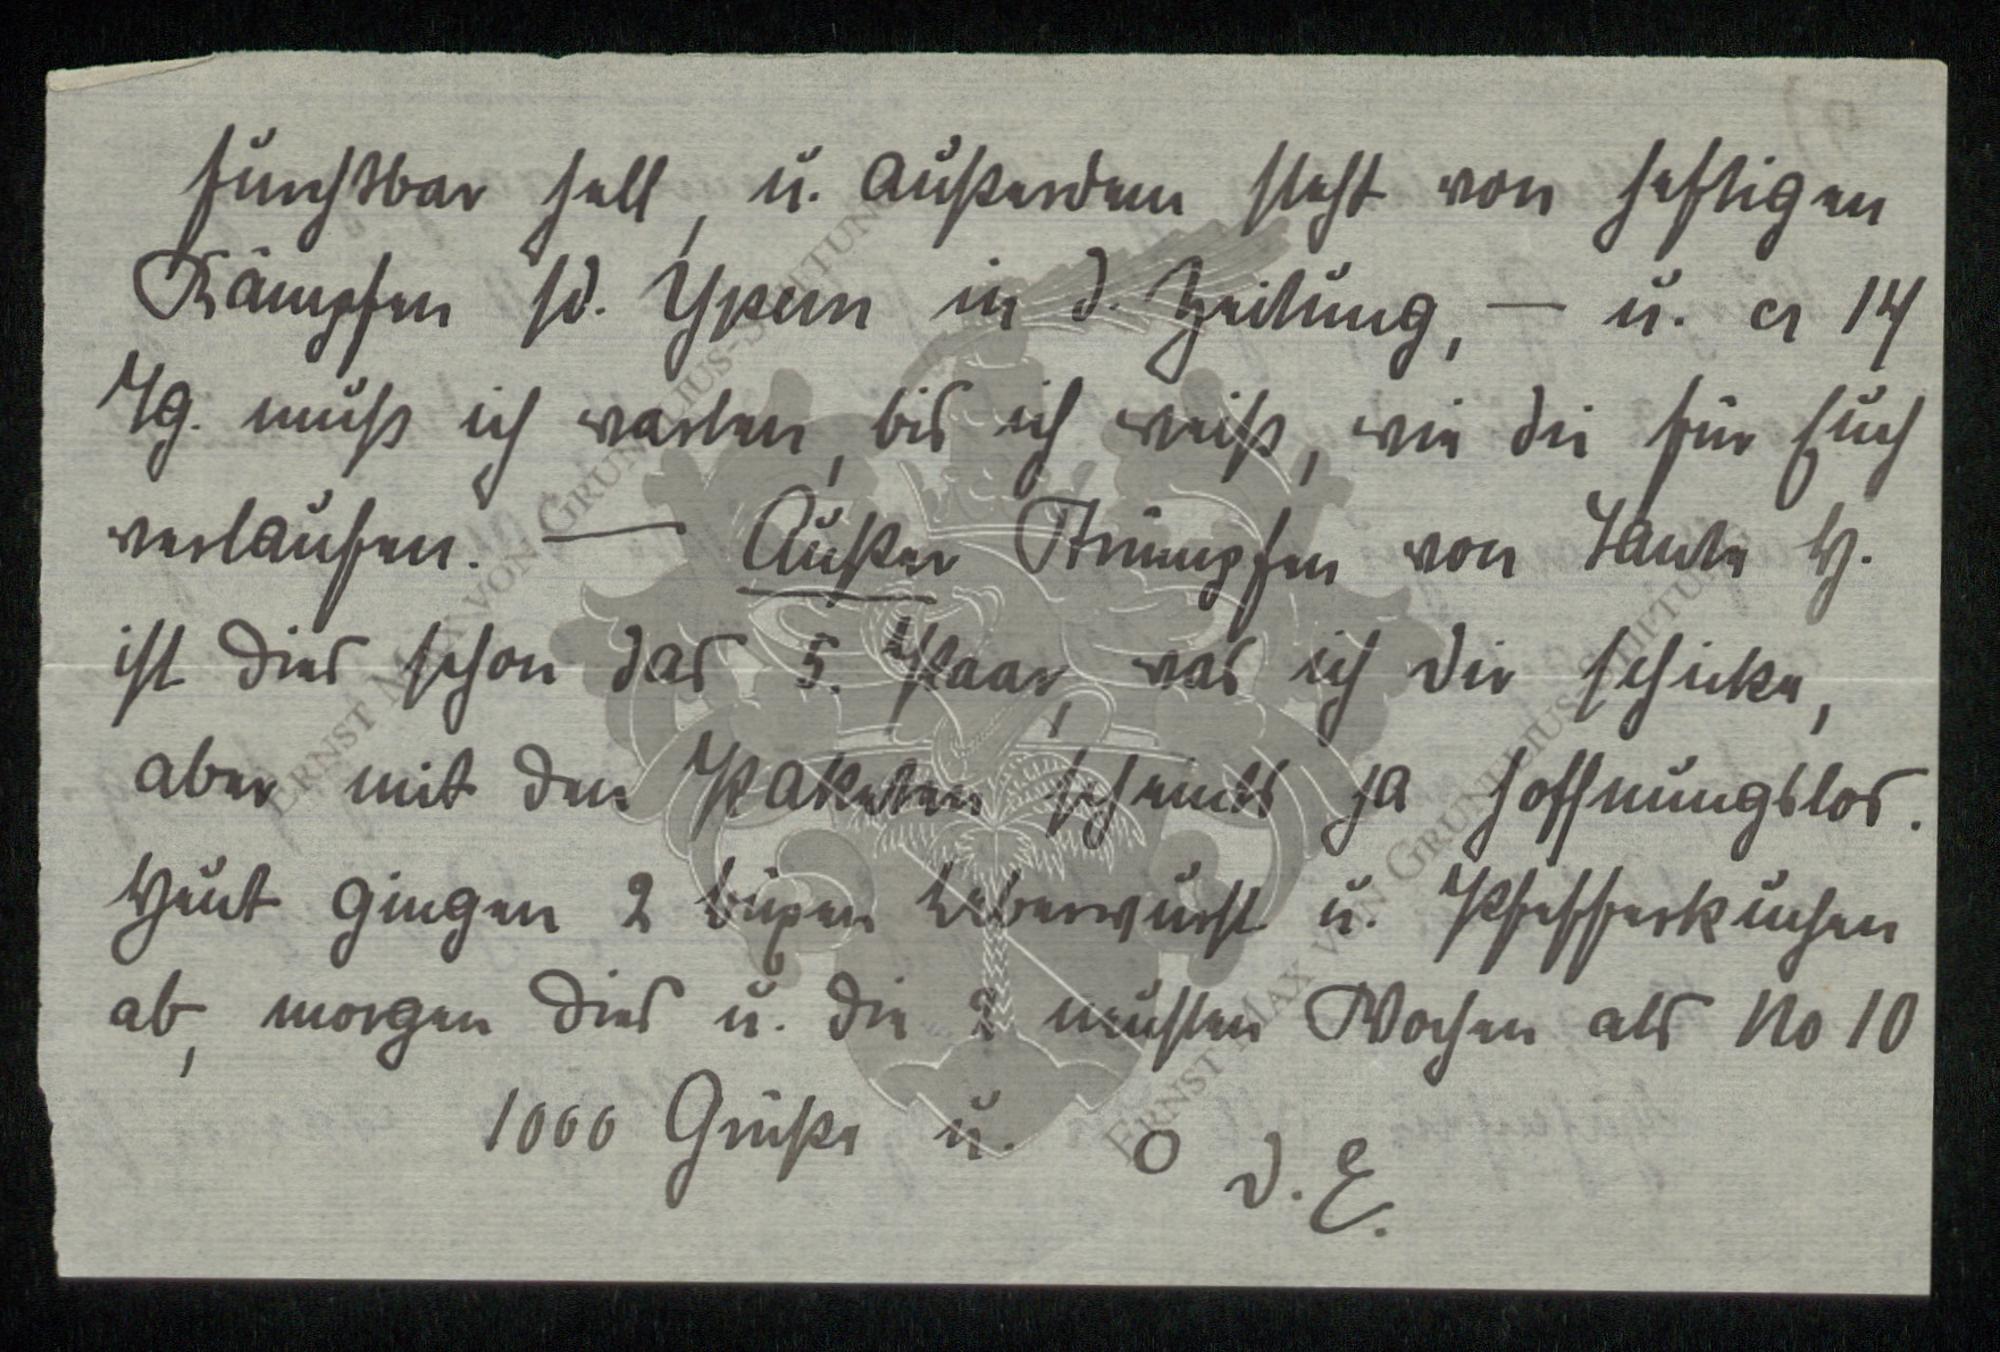 furchtbar hell, u. außerdem steht von heftigen
Kämpfen sd. Ypern in d. Zeitung, — u. ca 14
Tg. muß ich warten, bis ich weiß, wie die für Euch
verlaufen. — Außer Strümpfen von Tante H.
ist dies schon das 5. Paar, was ich Dir schicke,
aber mit den Paketen scheints ja hoffnungslos.
Heut gingen 2 büxen Leberwurst u. Pfefferkuchen
ab, morgen dies u. die 2 neusten Wochen als No 10
1000 Grüße u. O D. E.
ERNST MAX VON GRUNELIUS-STIFTUNG
ERNST MAX VON GRUNELIUS-STIFTUNG